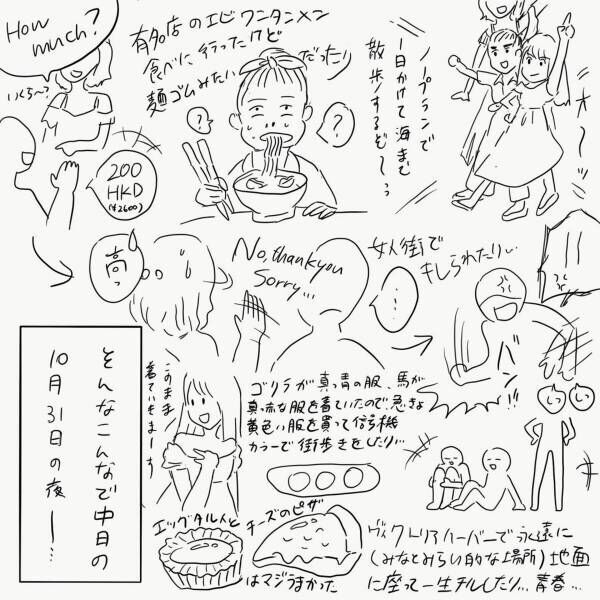 ノープランで
1日かけて海まで
散歩するぞ〜っ
オ〜ッ
有名店のエビワンタンメン
食べに行ったけど
麺ゴムみたいだったり
?
?
How
much?
いくら〜?
200
HKD
(¥2600)
高っ
No, thank you
Sorry...
…
女人街で
キレられたりぃ
バン!!
ゴリラが真っ青の服、馬が
真っ赤な服を着ていたので急きょ
黄色い服を買って信号機
カラーで街歩きをしたり…
このまま
着ていきまーす
エッグタルトとチーズのピザ
はマジうまかった
ヴィクトリアハーバーで永遠に
(みなとみらい的な場所)地面
に座って一生チルしたり…青春…
そんなこんなで中日の
10月31日の夜―…